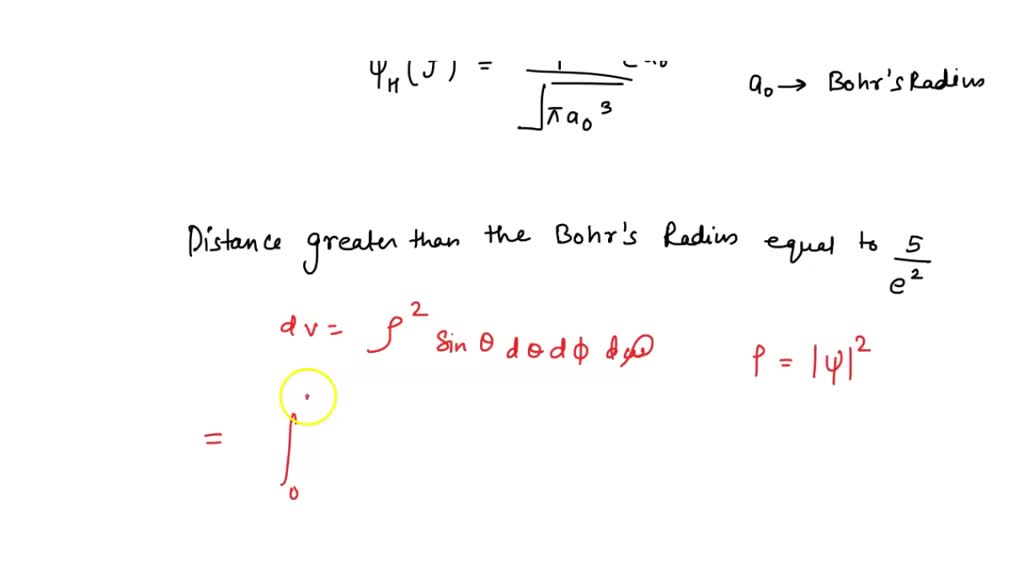 ψ_H(J) = 1 / √(πa₀³)
a₀ → Bohr's Radius
Distance greater than the Bohr's Radius equal to 5/e²
dv = ρ² sin θ dθ dϕ
P = |ψ|²
= ∫₀